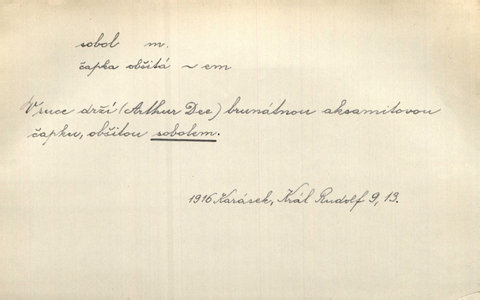 sobol m.
čapka obšitá ~ em
V ruce drží (Arthur Dee) brunátnou aksamitovou
čapku, obšitou sobolem.
1916 Karásek, Král Rudolf 9, 13.